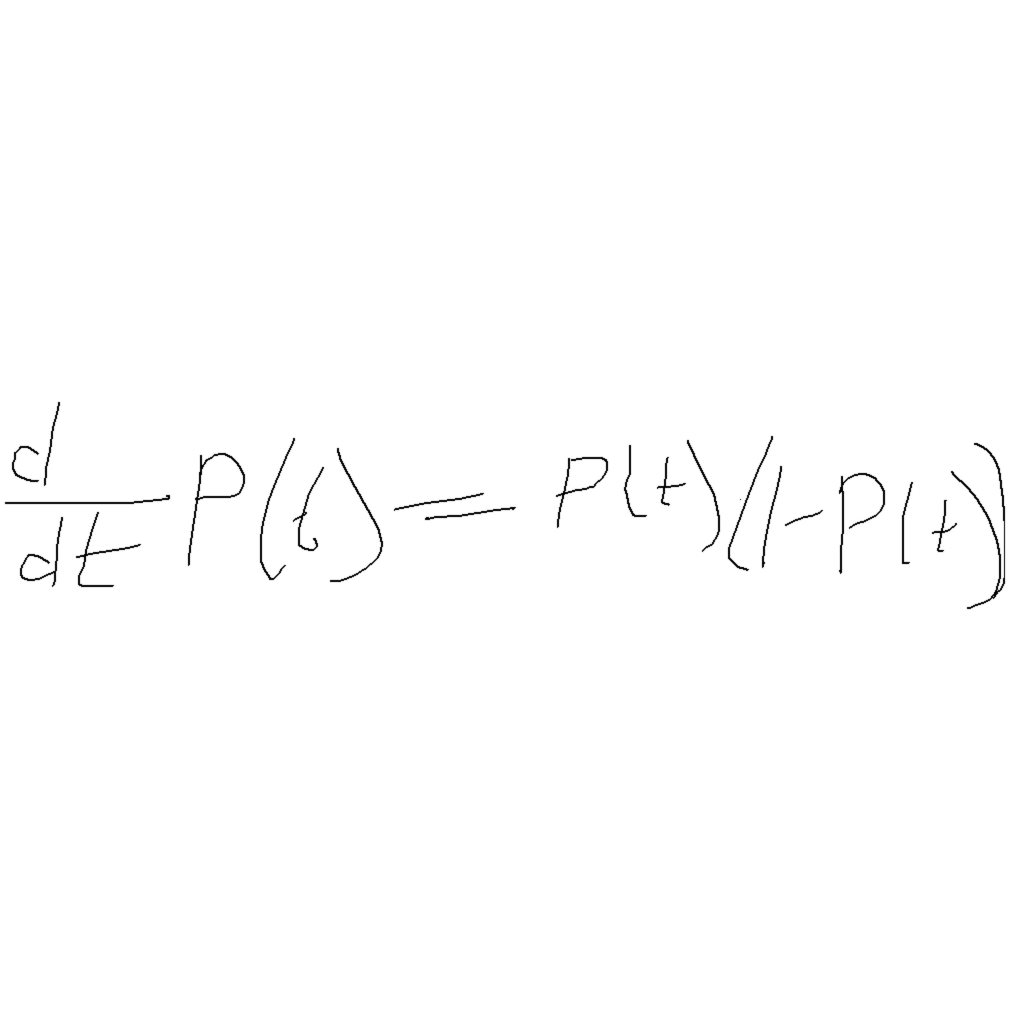 \frac{d}{dt} P(t) = P(t)(1-P(t))